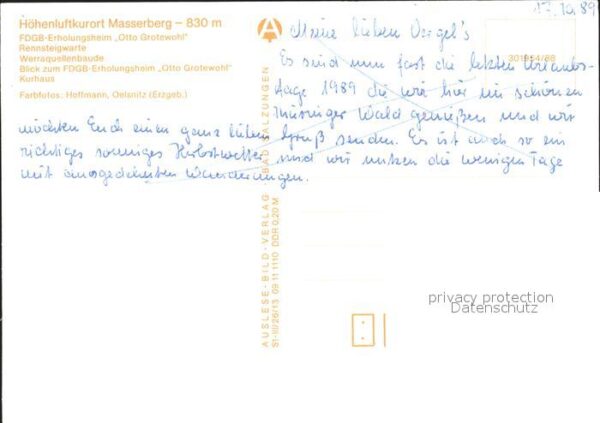 Höhenluftkurort Masserberg – 830 m
FDGB-Erholungsheim „Otto Grotewohl"
Rennsteigwarte
Werraquellenbaude
Blick zum FDGB-Erholungsheim „Otto Grotewohl"
Kurhaus
Farbfotos: Hoffmann, Oelsnitz (Erzgeb.)
17.10.89
Meine lieben
Es sind nun fast die letzten Urlaubs-
tage 1989 die wir hier im schönen
Thüringer Wald genießen und wir
möchten Euch einen ganz lieben Gruß senden. Es ist auch so ein
richtiges sonniges Herbstwetter und wir nutzen die wenigen Tage
mit ausgedehnten Wanderungen.
AUSLESE-BILD-VERLAG · BAD SALZUNGEN
09 11 1110 DDR 0,20 M
privacy protection
Datenschutz